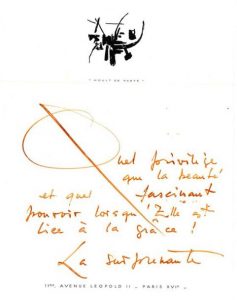 Quel privilège
que la beauté
et quel fascinant
pouvoir lorsqu'Elle est
liée à la grâce !
La surprenante
AVENUE LEOPOLD II - PARIS XVIe -